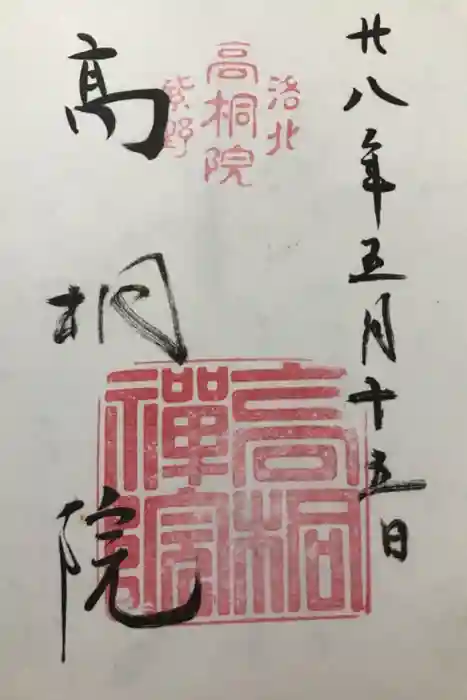 廿八年五月十五日
洛北
高桐院
紫野
高桐院
高桐禅院